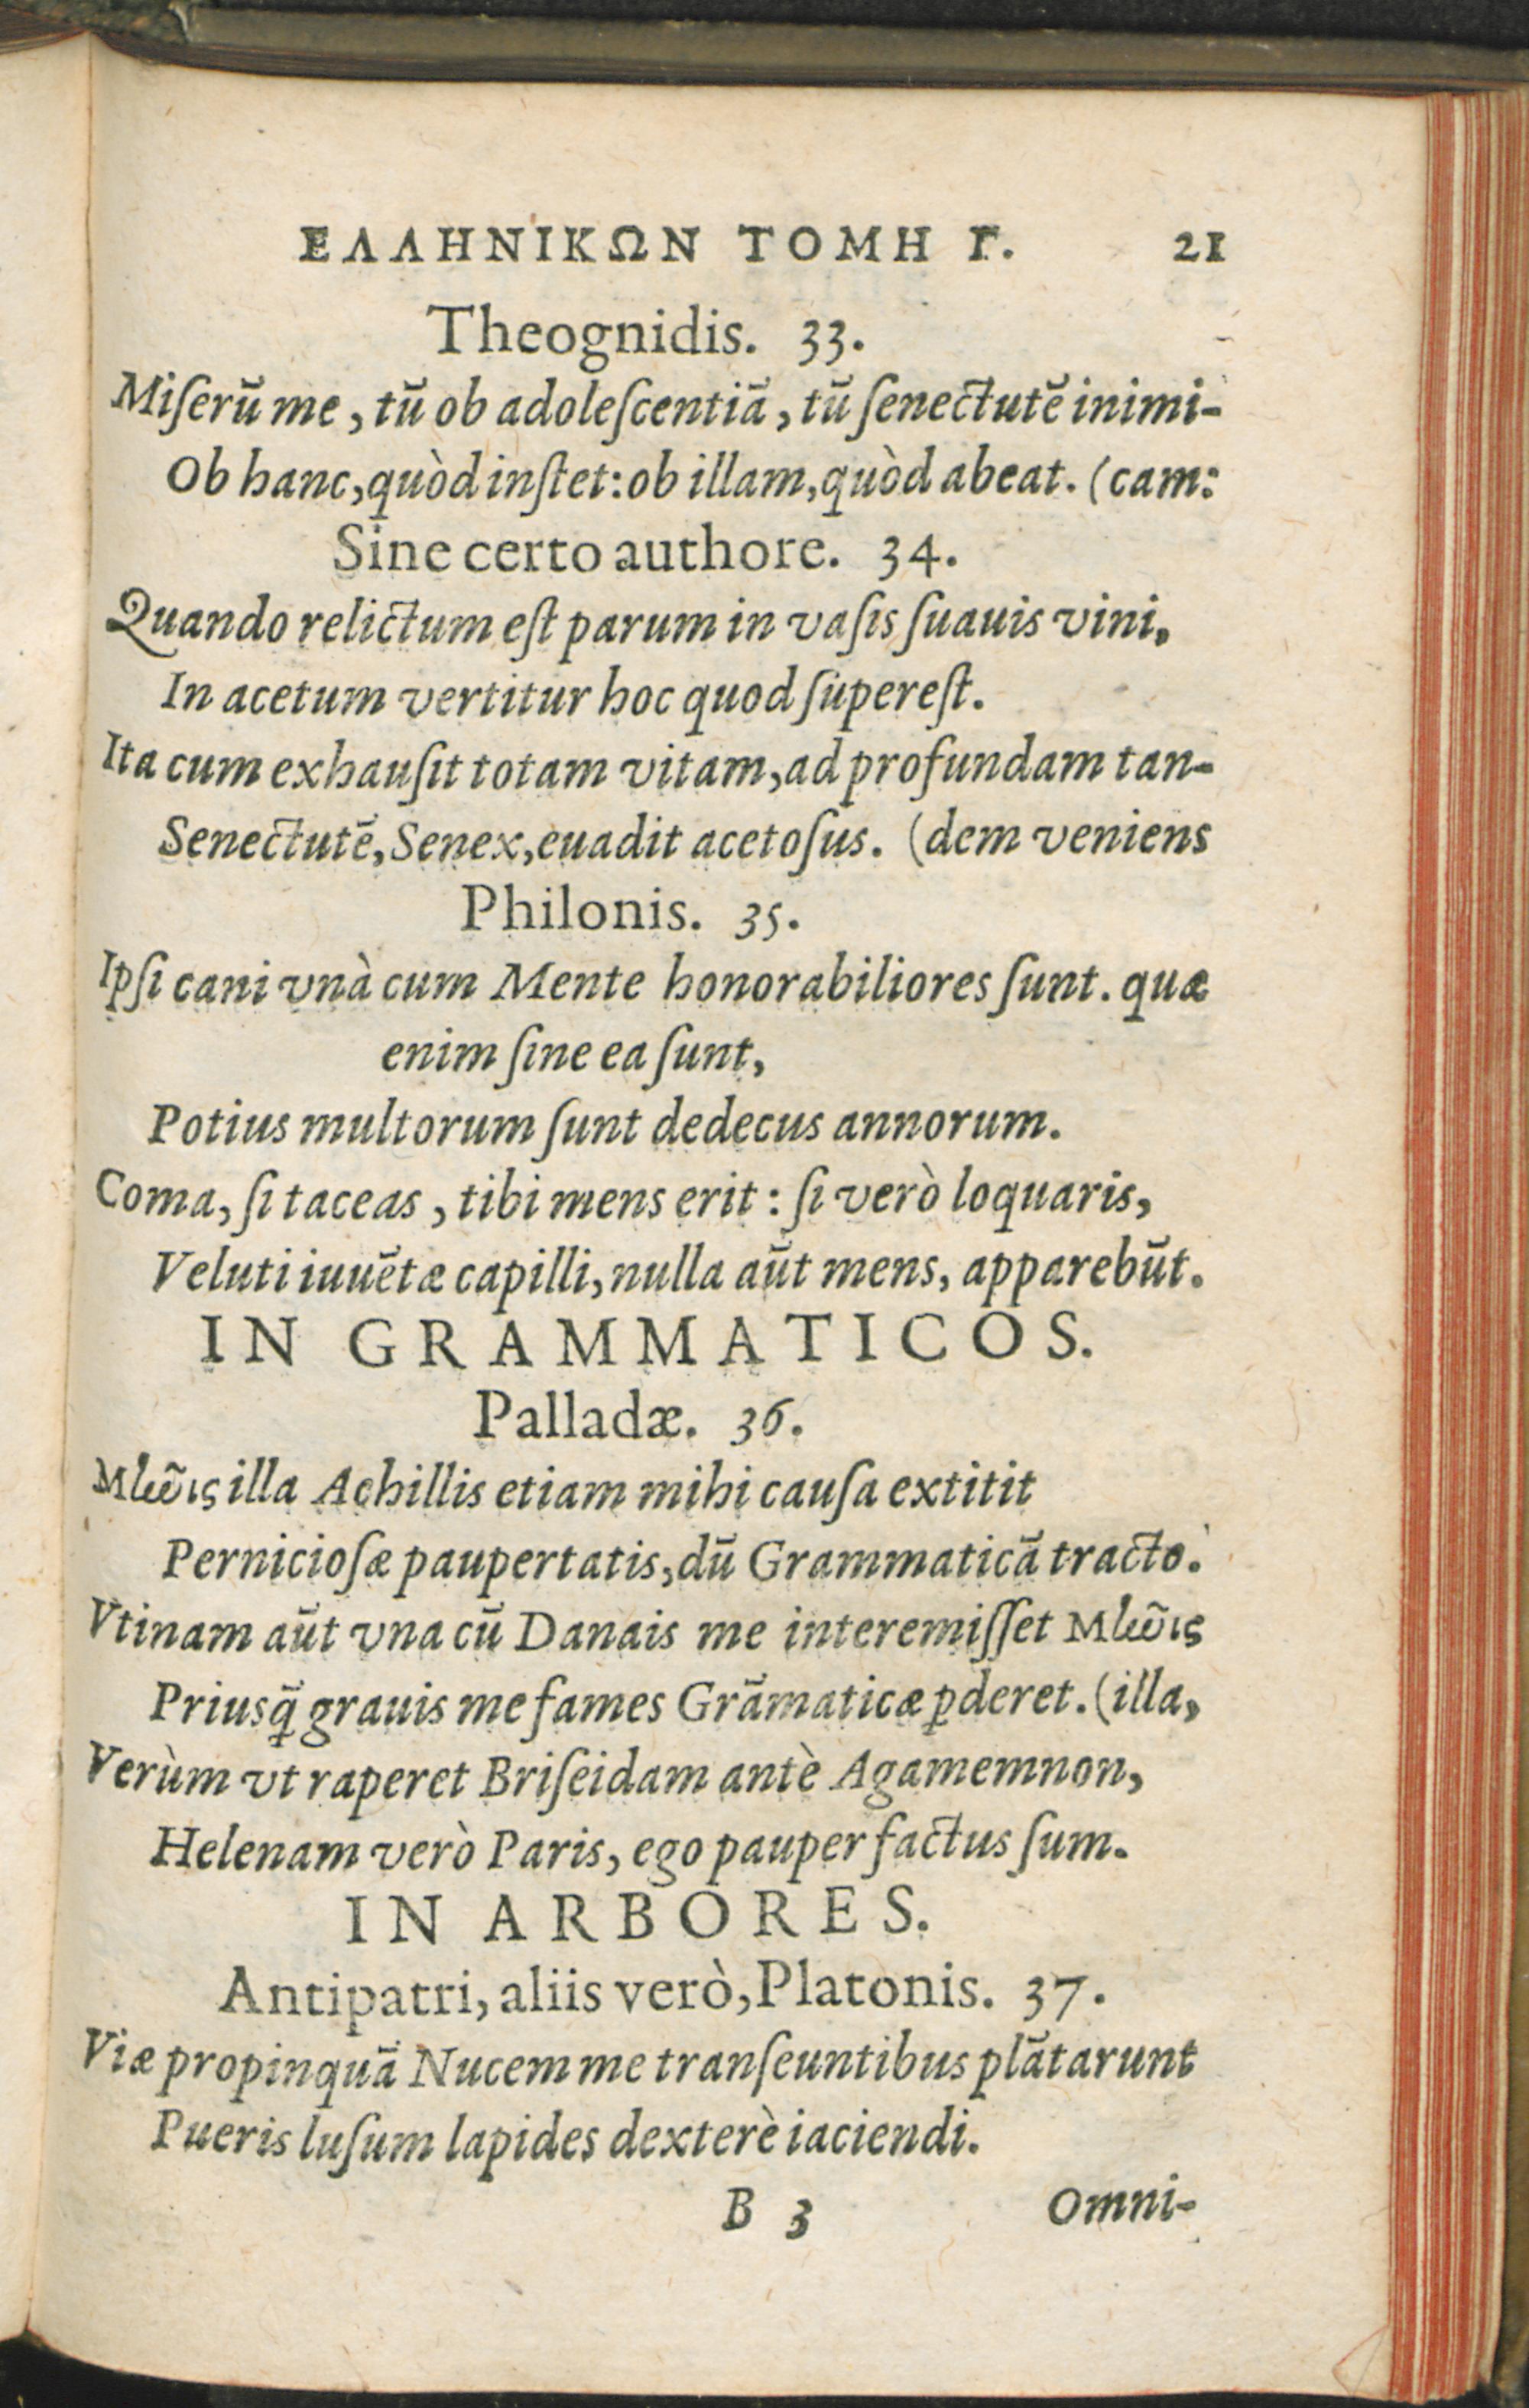 ΕΛΛΗΝΙΚΩΝ ΤΟΜΗ Γ. 21
Theognidis. 33.
Miſerū me, tū ob adoleſcentiā, tū ſenectutē inimi-
Ob hanc, quòd inſtet: ob illam, quòd abeat. (cam:
Sine certo authore. 34.
Quando relictum eſt parum in vaſis ſuauis vini,
In acetum vertitur hoc quod ſupereſt.
Ita cum exhauſit totam vitam, ad profundam tan-
Senectutē, Senex, euadit acetoſus. (dem veniens
Philonis. 35.
Ipſi cani vnà cum Mente honorabiliores ſunt. quæ
enim ſine ea ſunt,
Potius multorum ſunt dedecus annorum.
Coma, ſi taceas, tibi mens erit: ſi verò loquaris,
Veluti iuuētæ capilli, nulla aūt mens, apparebūt.
IN GRAMMATICOS.
Palladæ. 36.
Μῆνις illa Achillis etiam mihi cauſa extitit
Pernicioſæ paupertatis, dū Grammaticā tracto.
Vtinam aūt vna cū Danais me interemiſſet Μῆνις
Priusq̃ grauis me fames Grāmaticæ ꝑderet. (illa,
Verùm vt raperet Briſeidam antè Agamemnon,
Helenam verò Paris, ego pauper factus ſum.
IN ARBORES.
Antipatri, aliis verò, Platonis. 37.
Viæ propinquā Nucem me tranſeuntibus plātarunt
Pueris luſum lapides dexterè iaciendi.
B 3 Omni-